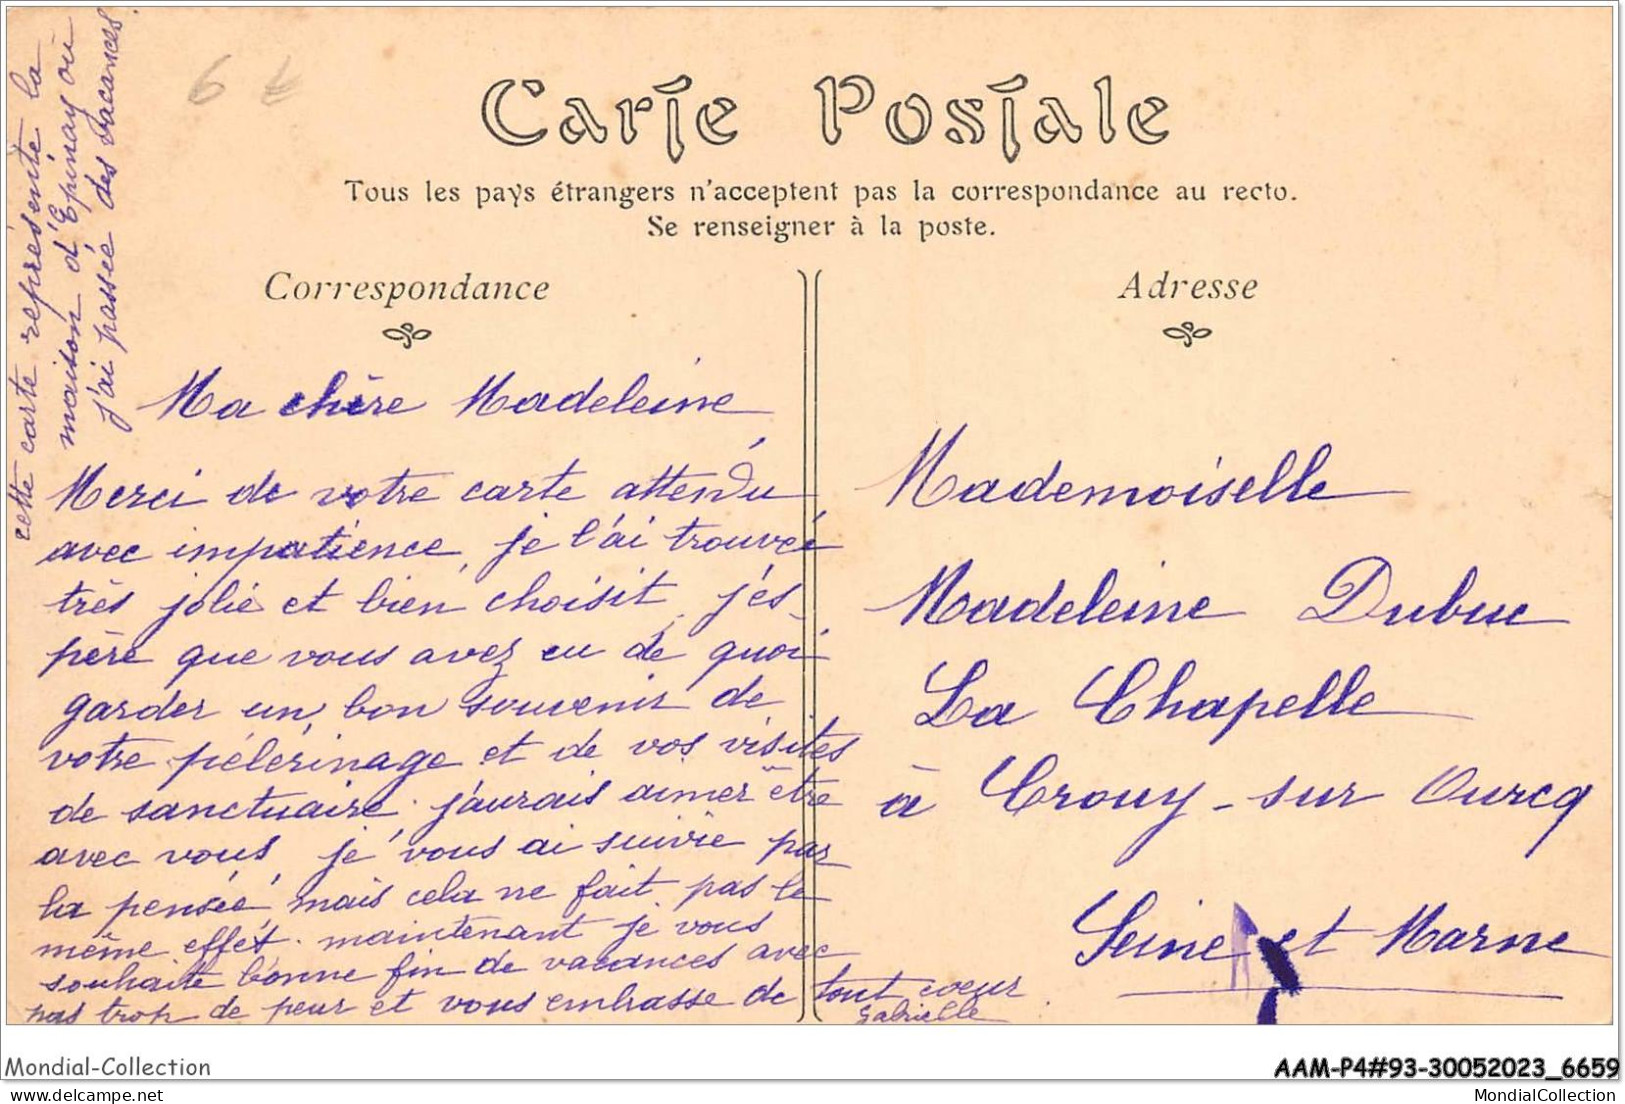 cette carte représente la
maison d'Epinay où
j'ai passée des vacances.
6 €
Carte Postale
Tous les pays étrangers n'acceptent pas la correspondance au recto.
Se renseigner à la poste.
Correspondance
Adresse
Ma chère Madeleine
Merci de votre carte attendu
avec impatience, je l'ai trouvée
très jolie et bien choisit, j'és-
père que vous avez eu de quoi
garder un bon souvenir de
votre pélérinage et de vos visites
de sanctuaire. j'aurais aimer être
avec vous, je vous ai suivie par
la pensée, mais cela ne fait pas le
même effet. maintenant je vous
souhaite bonne fin de vacances avec
pas trop de peur et vous embrasse de tout coeur.
Gabrielle
Mademoiselle
Madeleine Dubuc
La Chapelle
à Crouy-sur Ourcq
Seine et Marne
Mondial-Collection
AAM-P4#93-30052023_6659
delcampe.net
MondialCollection